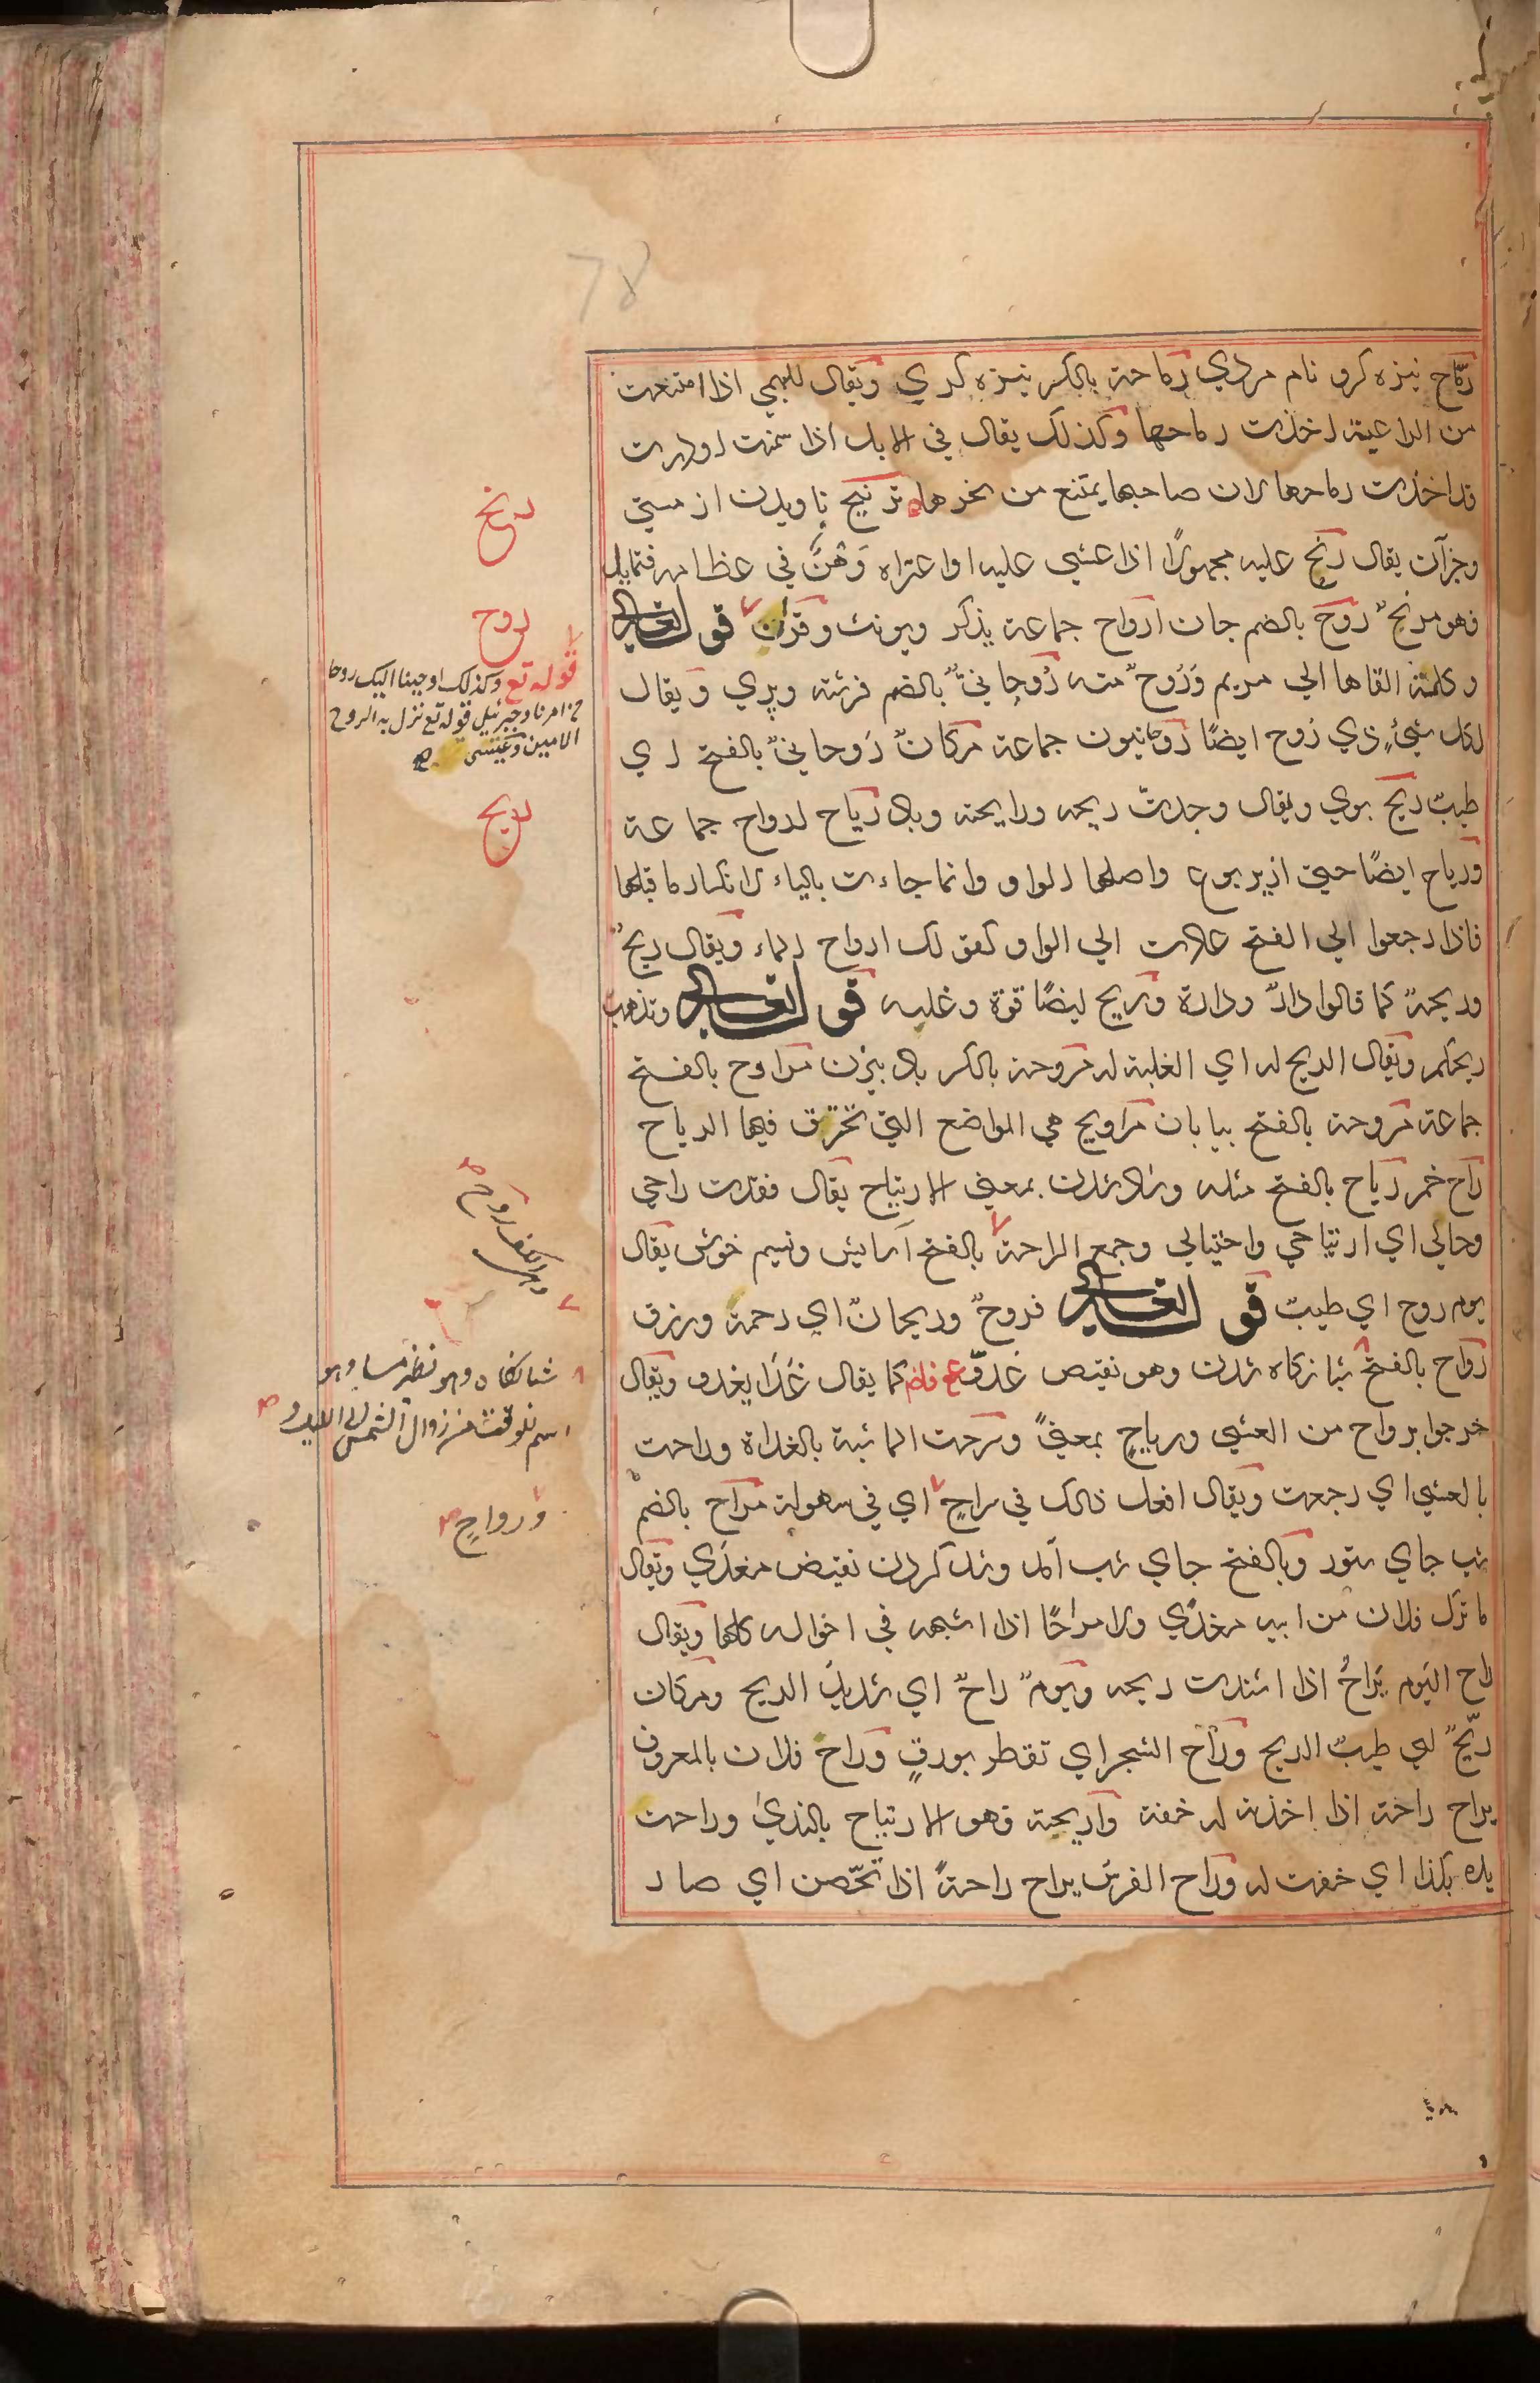 رمّاح نیزه کرو نام مردي رماحة بالکسر نیزه کري ويقال للبهمي اذا امتنعت
من الراعية اخذت رماحها وكذلك يقال في الابل اذا سمنت او درت
قد اخذت رماحها لان صاحبها يمتنع من نحرها ترنيح ناويدن از مستي
وجزآن يقال رنح عليه مجهولًا اذا غشي عليه او اعتراه وَهْنٌ في عظامه فتمايل
فهو مرنح روح بالضم جان ارواح جماعة يذكر ويونث وقرآن قوله تعالى
وكلمته القاها الي مريم وَرُوحٌ منه رُوحانيٌّ بالضم فرشته وپري ويقال
لكل شيءٍ ذي روح ايضًا روحانيون جماعة مكانٌ رَوحانيٌّ بالفتح اي
طيبٌ ريح بوي ويقال وجدت ريحه ورايحته وباد رياح ارواح جماعة
ورياح ايضًا حيي از يربوع واصلها الواو وانما جاءت بالياء لانكسار ما قبلها
فاذا رجعوا الي الفتح عادت الي الواو كقولك ارواح الماء ويقال ريحٌ
وريحةٌ كما قالوا دارٌ ودارة وريح ايضًا قوة وغلبه قوله تعالى وتذهب
ريحكم ويقال الريح له اي الغلبة له مروحة بالكسر باد بيزن مراوح بالفتح
جماعة مروحة بالفتح بيابان مراويح هي المواضع التي تخترق فيها الرياح
راح خمر رياح بالفتح مثله وشاد شدن بمعني الارتياح يقال فقدت راحي
وخالي اي ارتياحي واختيالي وجمع الراحة بالفتح آسايش ونسيم خوش يقال
يوم روح اي طيبٌ قوله تعالى فروحٌ وريحانٌ اي رحمة ورزق
رواح بالفتح شبانكاه شدن وهو نقيض غدوّ كما يقال غَدَا يغدو ويقال
خرجوا برواح من العشي ورياحٍ بمعنيً وسرحت الماشية بالغداة وراحت
بالعشي اي رجعت ويقال افعل ذلك في سراحٍ اي في سهولة مراح بالضم
شب جاي ستور وبالفتح جاي شب آمد وشد كردن نقيض مغدَي ويقال
ما ترك فلان من ابيه مغدًي ولا مراحًا اذا اشبهه في احواله كلها ويقال
راح اليوم يَراحُ اذا اشتدت ريحه ويومٌ راحٌ اي شديد الريح ومكان
ريّحٌ اي طيب الريح وراح الشجر اي تفطر بورقٍ وراح فلان بالمعروف
يراح راحة اذا اخذته له خفة واريحية وهو الارتياح بالندي وراحت
يده بكذا اي خفت له وراح الفرس يراح راحةً اذا تحّصن اي صار
رنح
روح
قوله تع وكذلك اوحينا اليك روحا
من امرنا وجبرئيل قوله تع نزل به الروح
الامين وعيسى
ريح
شبانكاه وهو نظير مساء وهو
اسم للوقت من زوال الشمس الى الليل
ورواحٍ